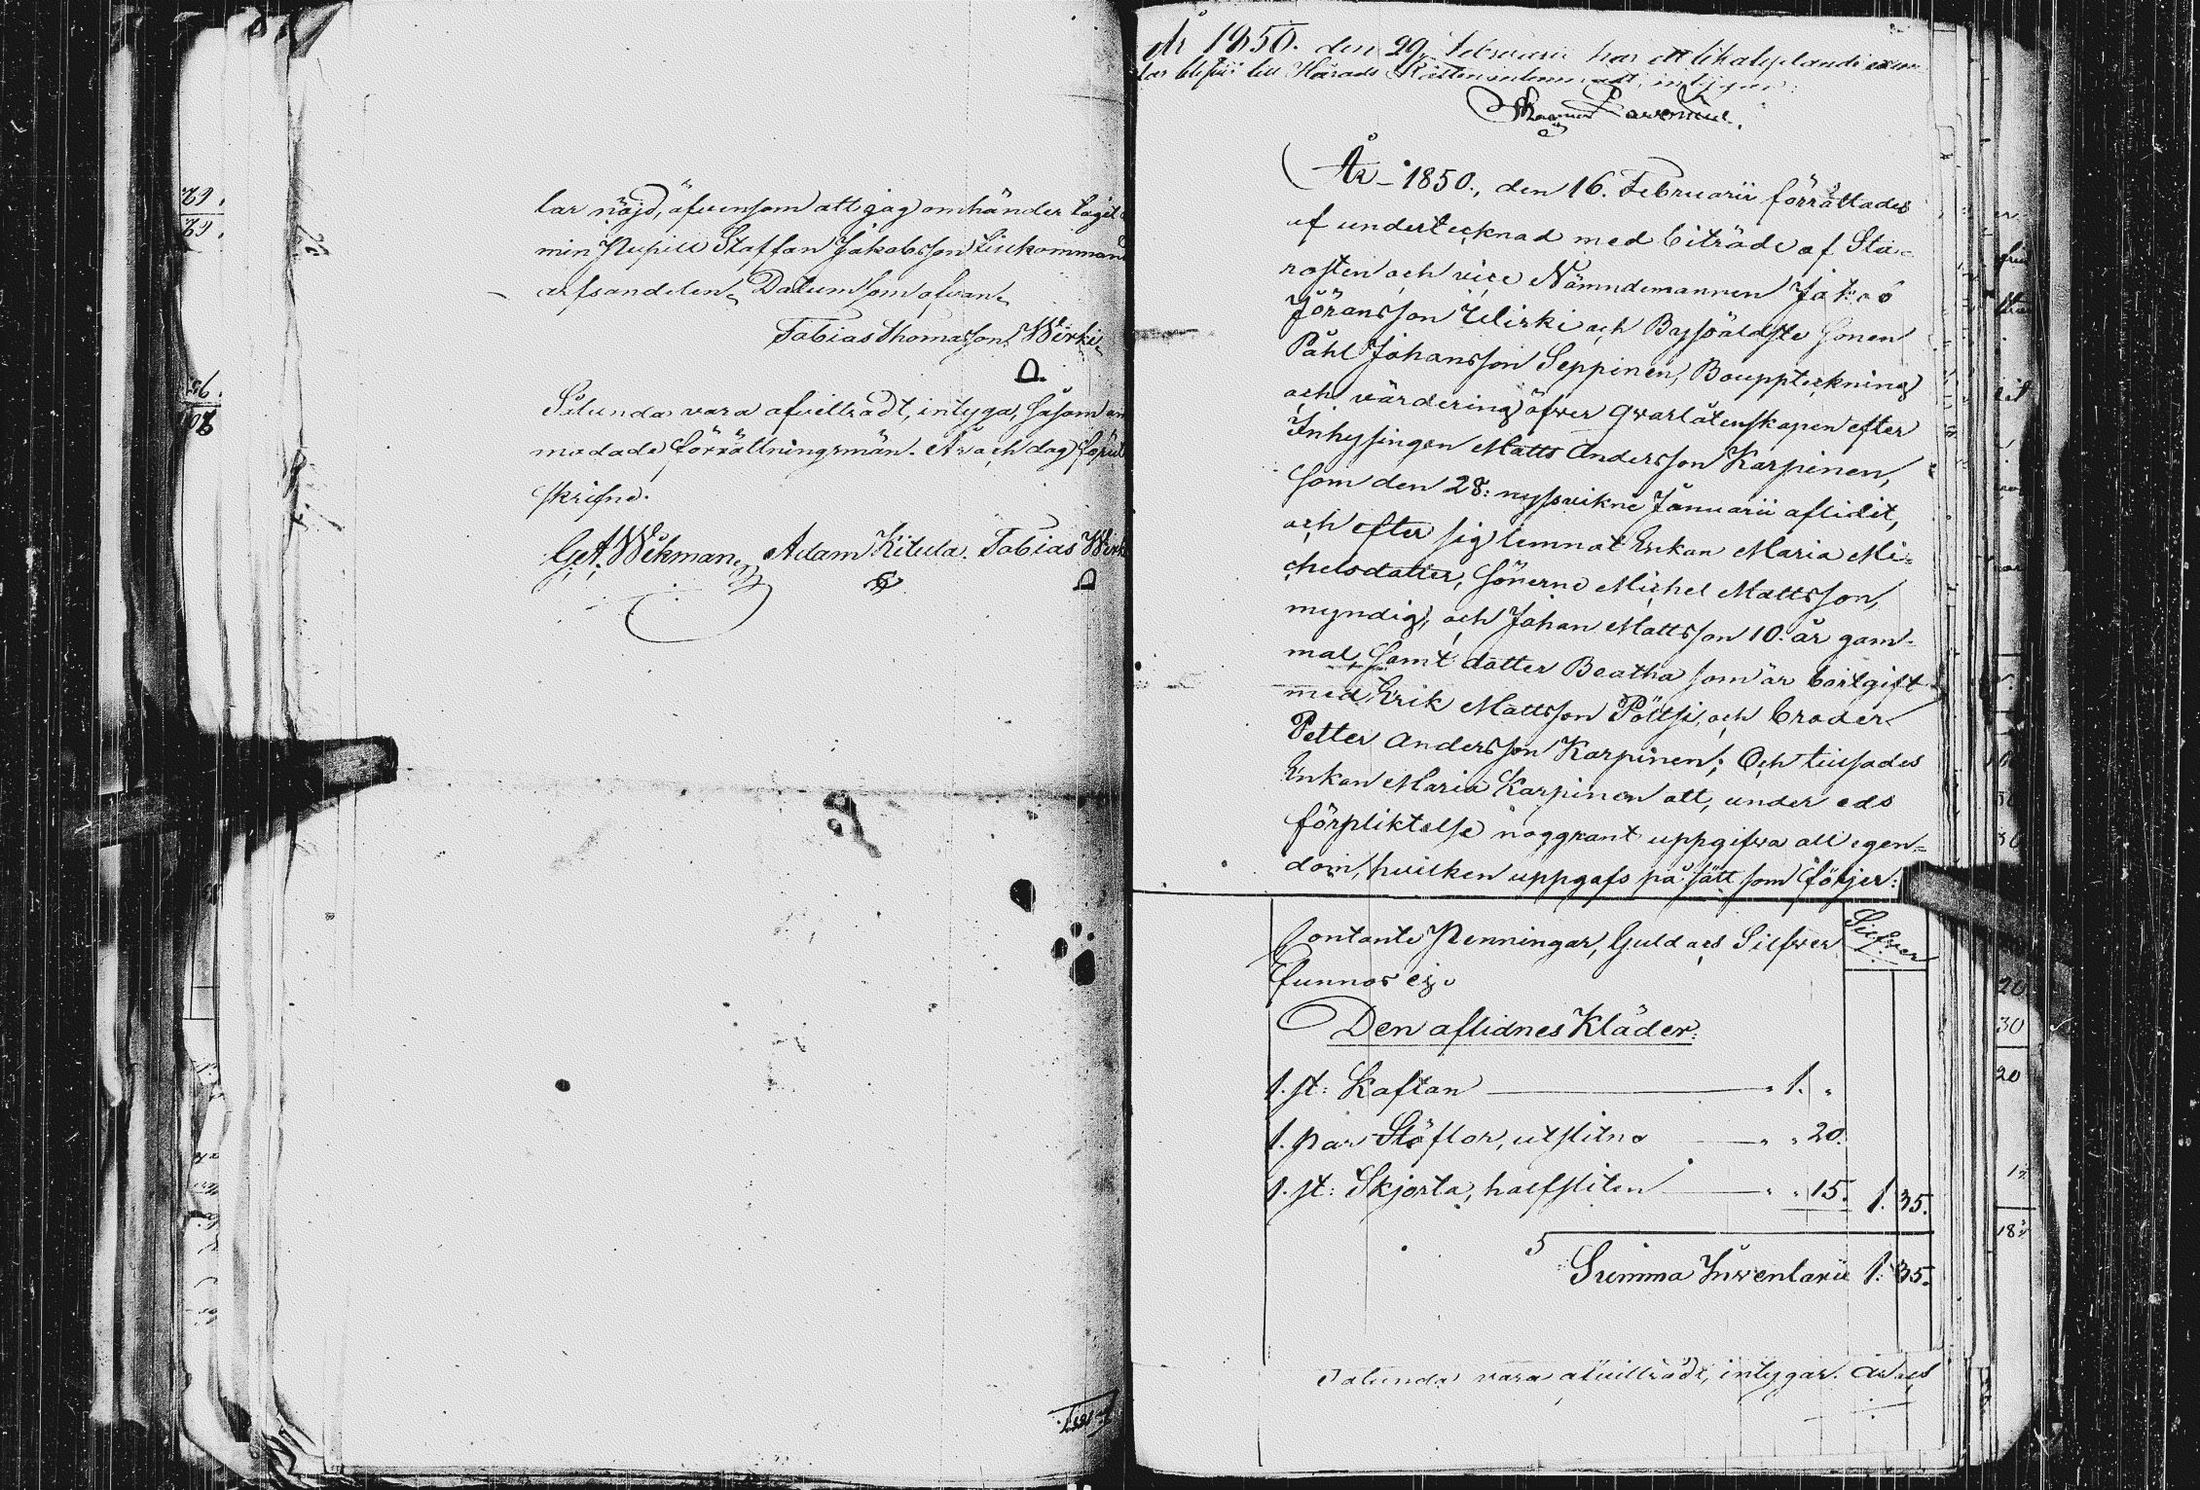 lar nöjd, äfvensom att jag omhänder tagit
min Pupill Staffan Jakobsson tillkommand
arfsandelen, Datum som ofvan,
Tobias Thomasson Wirki
Sålunda vara afvittradt, intyga, såsom an
modade förrättningsmän. År och dag förut
skrifne.
G. A. Wikman, Adam Kilula. Tobias Wirk
År 1850. den 29 Februarii har ett likalydande exem
lar blifvit till Härads Rätten inlemnadt, intygar:
År 1850., den 16. Februarii förrättades
af undertecknad med biträde af Sta-
rosten och vice Nämndemannen Jakob
Jöransson Ulirki och Bysäldste sonen
Påhl Johansson Seppinen, Bouppteckning
och värdering öfver qvarlåtenskapen efter
Inhysingen Matts Andersson Karpinen,
som den 28: nyssvikne Januarii aflidit,
och efter sig lemnat Enkan Maria Mi-
chelsdatter, Sönerne Michel Mattsson,
myndig, och Johan Mattsson 10. år gam-
mal, samt dotter Beatha som är bortgift
med Erik Mattsson Pöltsi, och broder
Petter Andersson Karpinen; Och tillsades
Enkan Maria Karpinen att, under eds
förpliktelse noggrant uppgifva all egen=
dom, hvilken uppgafs på sätt som följer:
Silfver
Contante Penningar, Guld och Silfver
funnos ej.
Den aflidnes Kläder:
1. st: Kaftan " 1. "
1. par Stöflor, utslitne " " 20.
1. st: Skjorta, halfsliten " " 15. 1. 35.
Summa Inventarii 1. 35.
Sålunda vara afvittradt, intygar. År och